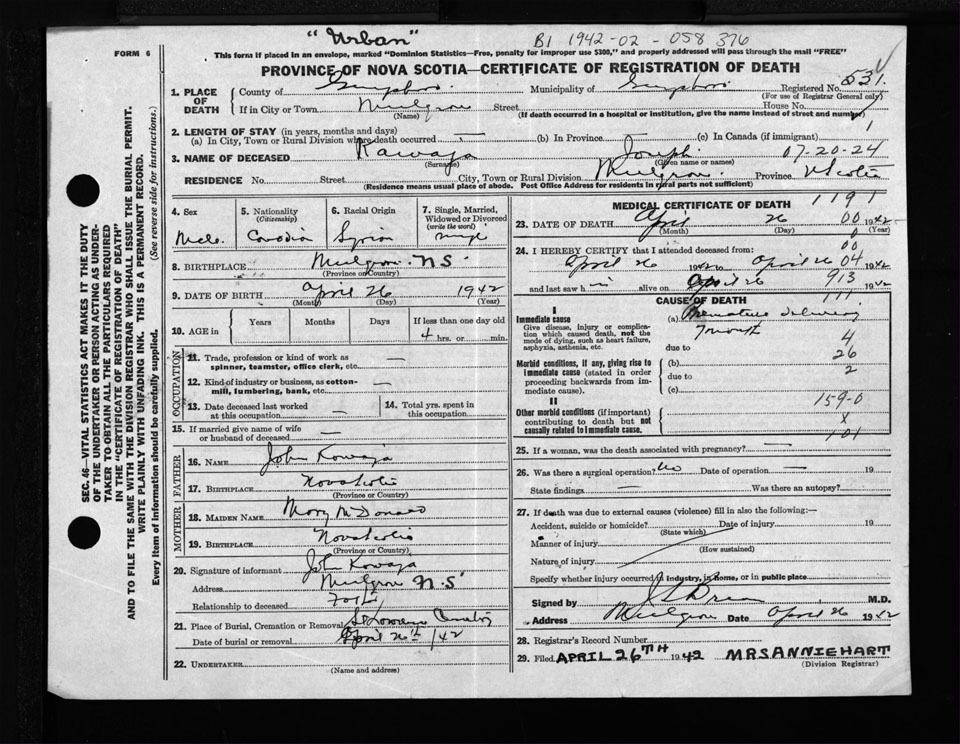 "Urban"
B1 1942-02-058 376
FORM 6
This form if placed in an envelope, marked "Dominion Statistics—Free, penalty for improper use $300," and properly addressed will pass through the mail "FREE"
PROVINCE OF NOVA SCOTIA—CERTIFICATE OF REGISTRATION OF DEATH
SEC. 46—VITAL STATISTICS ACT MAKES IT THE DUTY
OF THE UNDERTAKER OR PERSON ACTING AS UNDER-
TAKER TO OBTAIN ALL THE PARTICULARS REQUIRED
IN THE "CERTIFICATE OF REGISTRATION OF DEATH"
AND TO FILE THE SAME WITH THE DIVISION REGISTRAR WHO SHALL ISSUE THE BURIAL PERMIT.
WRITE PLAINLY WITH UNFADING INK. THIS IS A PERMANENT RECORD.
Every item of Information should be carefully supplied. (See reverse side for instructions.)
1. PLACE OF DEATH
County of Municipality of Registered No. 531.
(For use of Registrar General only)
If in City or Town Mulgrave Street House No.
(Name) (If death occurred in a hospital or institution, give the name instead of street and number)
2. LENGTH OF STAY (in years, months and days)
(a) In City, Town or Rural Division where death occurred — (b) In Province — (c) In Canada (if immigrant) 1
3. NAME OF DECEASED Kawaja Joseph 07-20-24
(Surname) (Given name or names)
RESIDENCE No. Street City, Town or Rural Division Mulgrave Province N Scotia
(Residence means usual place of abode. Post Office Address for residents in rural parts not sufficient)
4. Sex
Male
5. Nationality
(Citizenship)
Canadian
6. Racial Origin
Syrian
7. Single, Married, Widowed or Divorced
(write the word)
single
8. BIRTHPLACE Mulgrave N S
(Province or Country)
9. DATE OF BIRTH April 26 1942
(Month) (Day) (Year)
10. AGE in Years Months Days If less than one day old
4 hrs. or min.
OCCUPATION
11. Trade, profession or kind of work as
spinner, teamster, office clerk, etc. —
12. Kind of industry or business, as cotton-
mill, lumbering, bank, etc. —
13. Date deceased last worked
at this occupation —
14. Total yrs. spent in
this occupation
15. If married give name of wife
or husband of deceased —
FATHER
16. NAME John Kowaja
17. BIRTHPLACE Nova Scotia
(Province or Country)
MOTHER
18. MAIDEN NAME Mary McDonald
19. BIRTHPLACE Nova Scotia
(Province or Country)
20. Signature of informant John Kowaja
Address Mulgrave N.S
Relationship to deceased Father
21. Place of Burial, Cremation or Removal St Lawrence Cemetery
Date of burial or removal April 26th /42
22. UNDERTAKER
(Name and address)
MEDICAL CERTIFICATE OF DEATH 1191
23. DATE OF DEATH April 26 00 1942
(Month) (Day) (Year)
0
24. I HEREBY CERTIFY that I attended deceased from: 00
April 26 1942 to April 26 04 1942
and last saw h im alive on April 26 913 1942
111
CAUSE OF DEATH
I
Immediate cause (a) Premature delivery
Give disease, injury or complica-
tion which caused death, not the
mode of dying, such as heart failure,
asphyxia, asthenia, etc.
due to 4
26
Morbid conditions, if any, giving rise to
immediate cause (stated in order
proceeding backwards from im-
mediate cause).
(b)
2
due to
(c)
II
159-0
Other morbid conditions (if important)
contributing to death but not
causally related to immediate cause.
x
101
25. If a woman, was the death associated with pregnancy? —
26. Was there a surgical operation? No Date of operation — 19
State findings — Was there an autopsy?
27. If death was due to external causes (violence) fill in also the following:—
Accident, suicide or homicide? Date of injury 19
(State which)
Manner of injury
(How sustained)
Nature of injury
Specify whether injury occurred in industry, in home, or in public place
Signed by M.D.
Address Mulgrave Date April 26 1942
28. Registrar's Record Number
29. Filed APRIL 26TH 1942 MRS ANNIE HART
(Division Registrar)